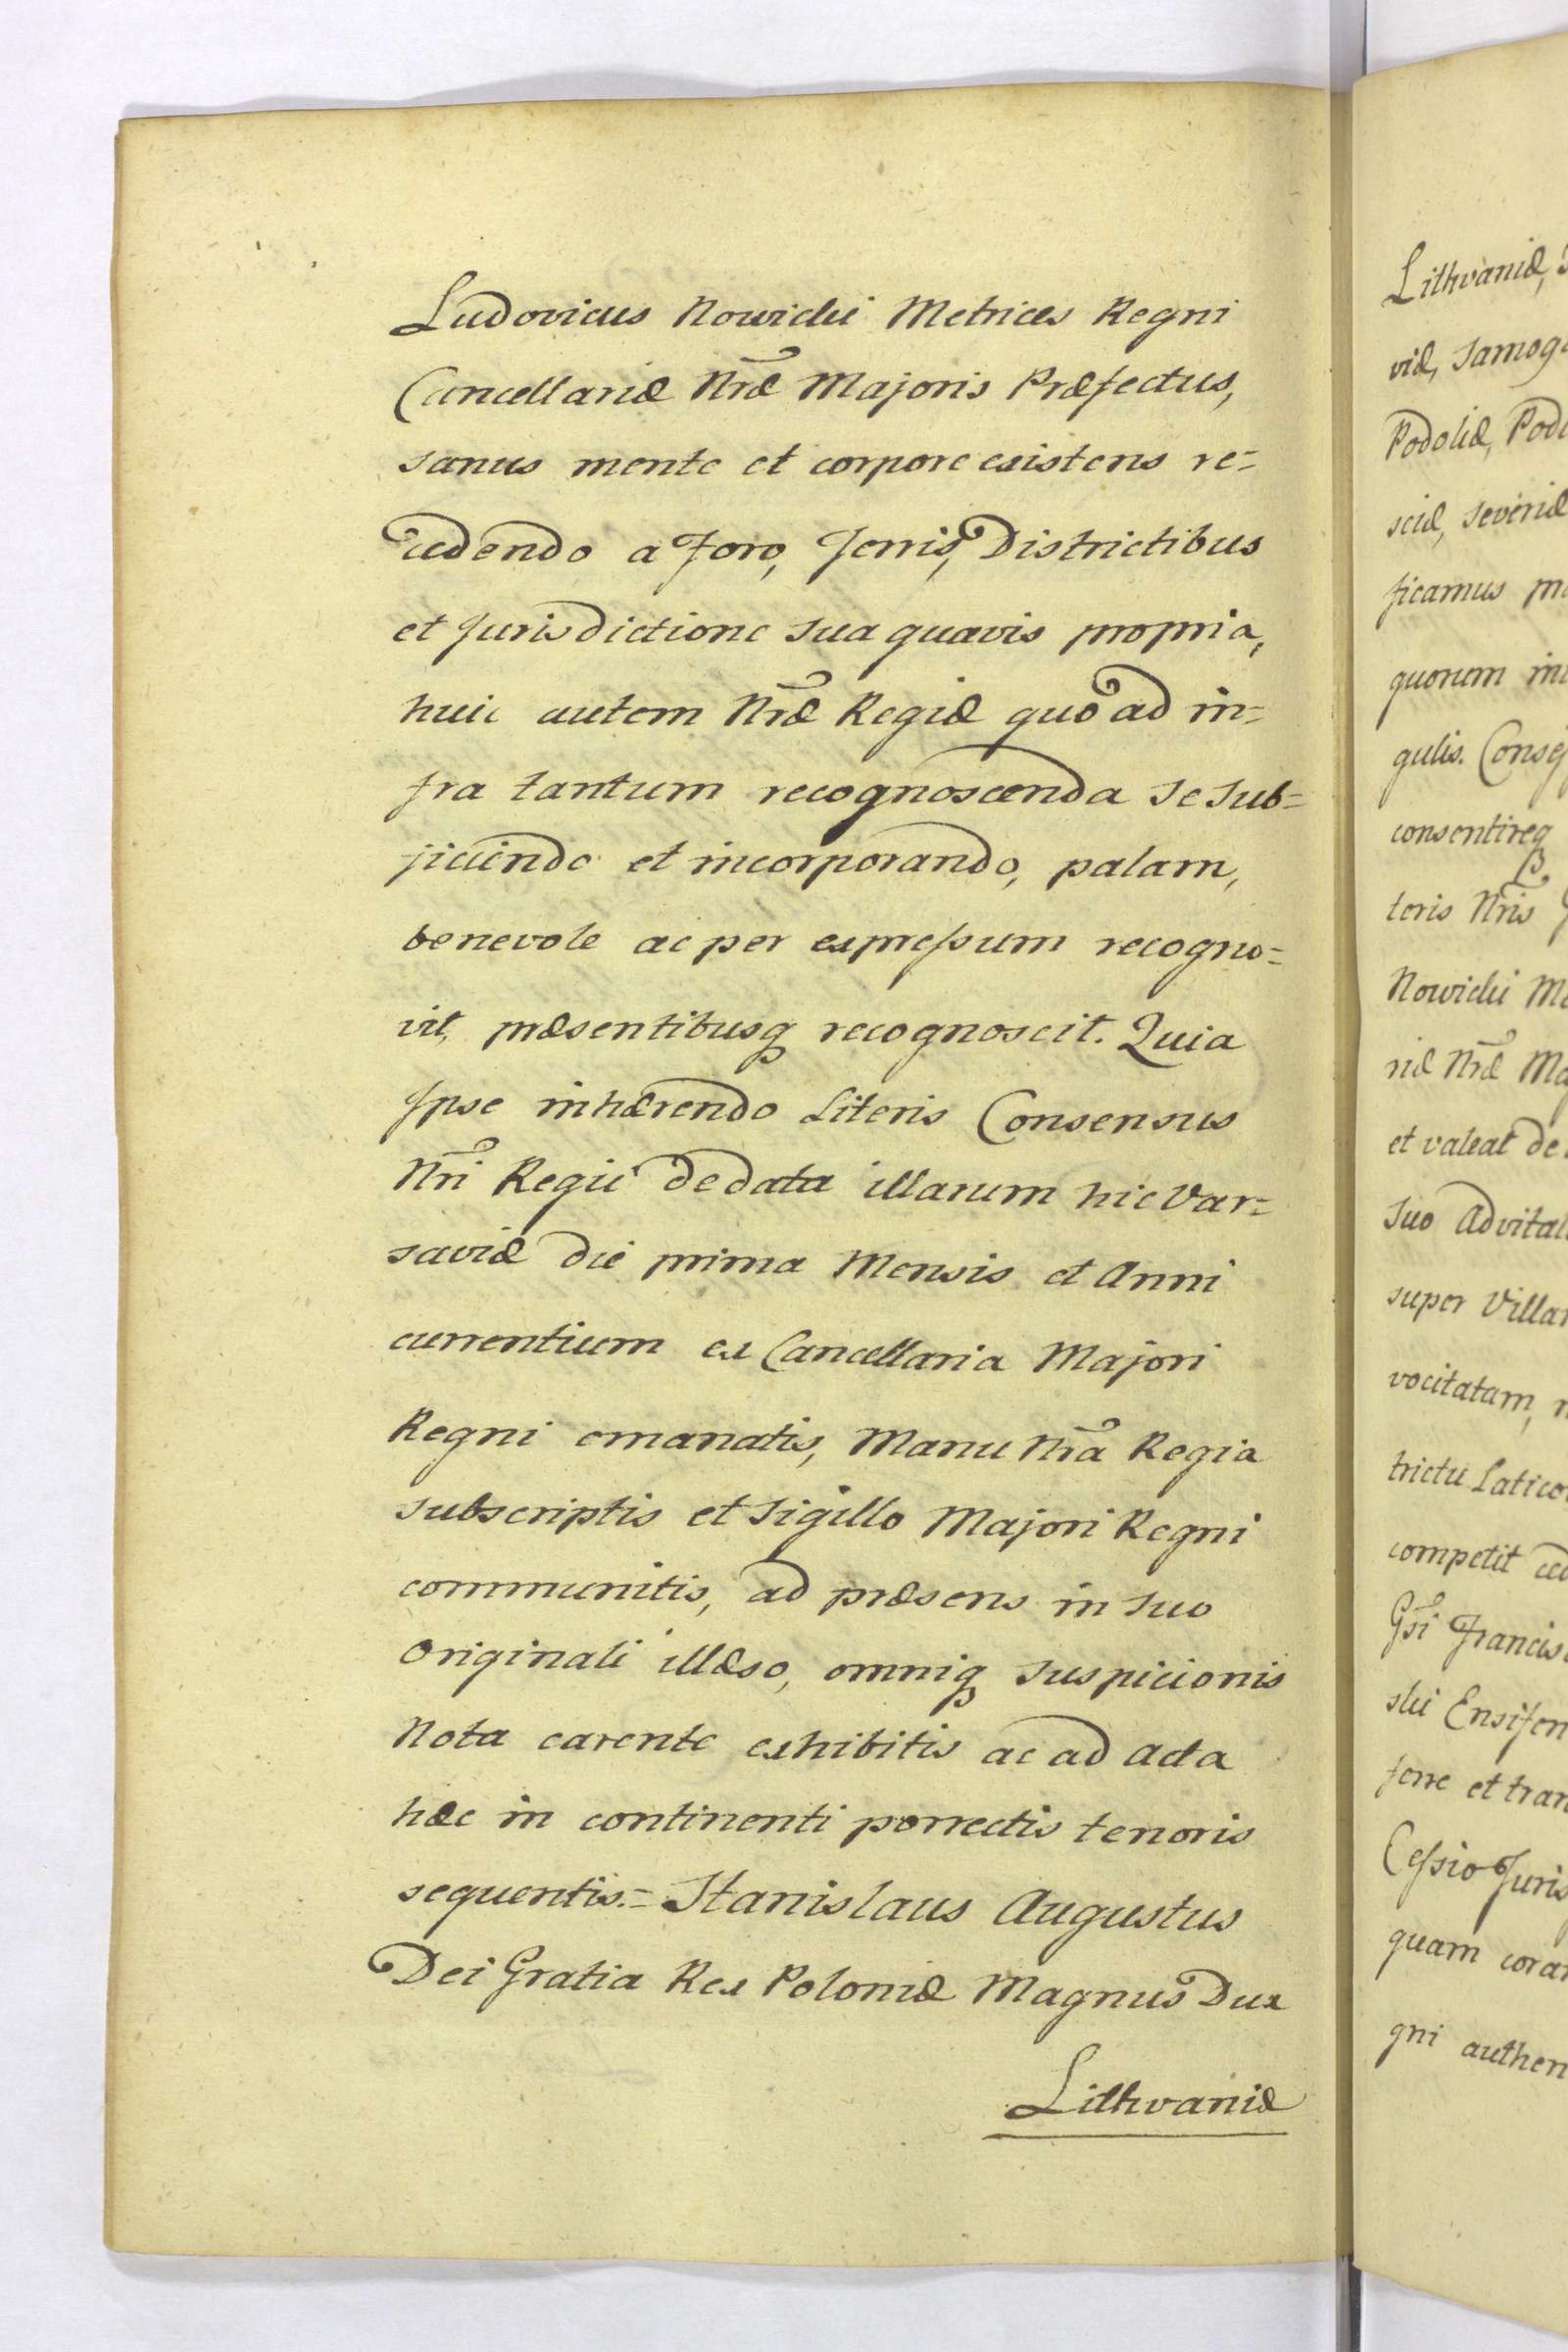 Ludovicus Nowicki Metrices Regni
Cancellariæ Nræ Majoris Præfectus,
sanus mente et corpore existens re=
cedendo a Foro, Terris, Districtibus
et Jurisdictione sua quavis propria,
huic autem Nræ Regiæ quo ad in=
fra tantum recognoscenda se sub=
jiciendo et incorporando, palam,
benevole ac per expressum recogno=
vit, præsentibusq recognoscit. Quia
Ipse inhærendo Literis Consensus
Nri Regii de data illarum hic Var=
saviæ die prima Mensis et Anni
currentium ex Cancellaria Majori
Regni emanatis, Manu Nra Regia
subscriptis et Sigillo Majori Regni
communitis, ad præsens in suo
Originali illæso, omniq suspicionis
Nota carente exhibitis ac ad Acta
hæc in continenti porrectis tenoris
sequentis.= Stanislaus Augustus
Dei Gratia Rex Poloniæ Magnus Dux
Lithvaniæ
Lithvaniæ,
viæ, Samog
Podoliæ, Pod
sciæ, Severiæ
ficamus
quorum in
gulis. Conse
consentireq
teris Nris
Nowicki M
riæ Nræ Ma
et valeat de
suo Advital
super Villa
vocitatam,
trictu Latico
competit ced
Gsi Francis
ski Ensifer
ferre et tran
Cessio Juris
quam cora
gni authen